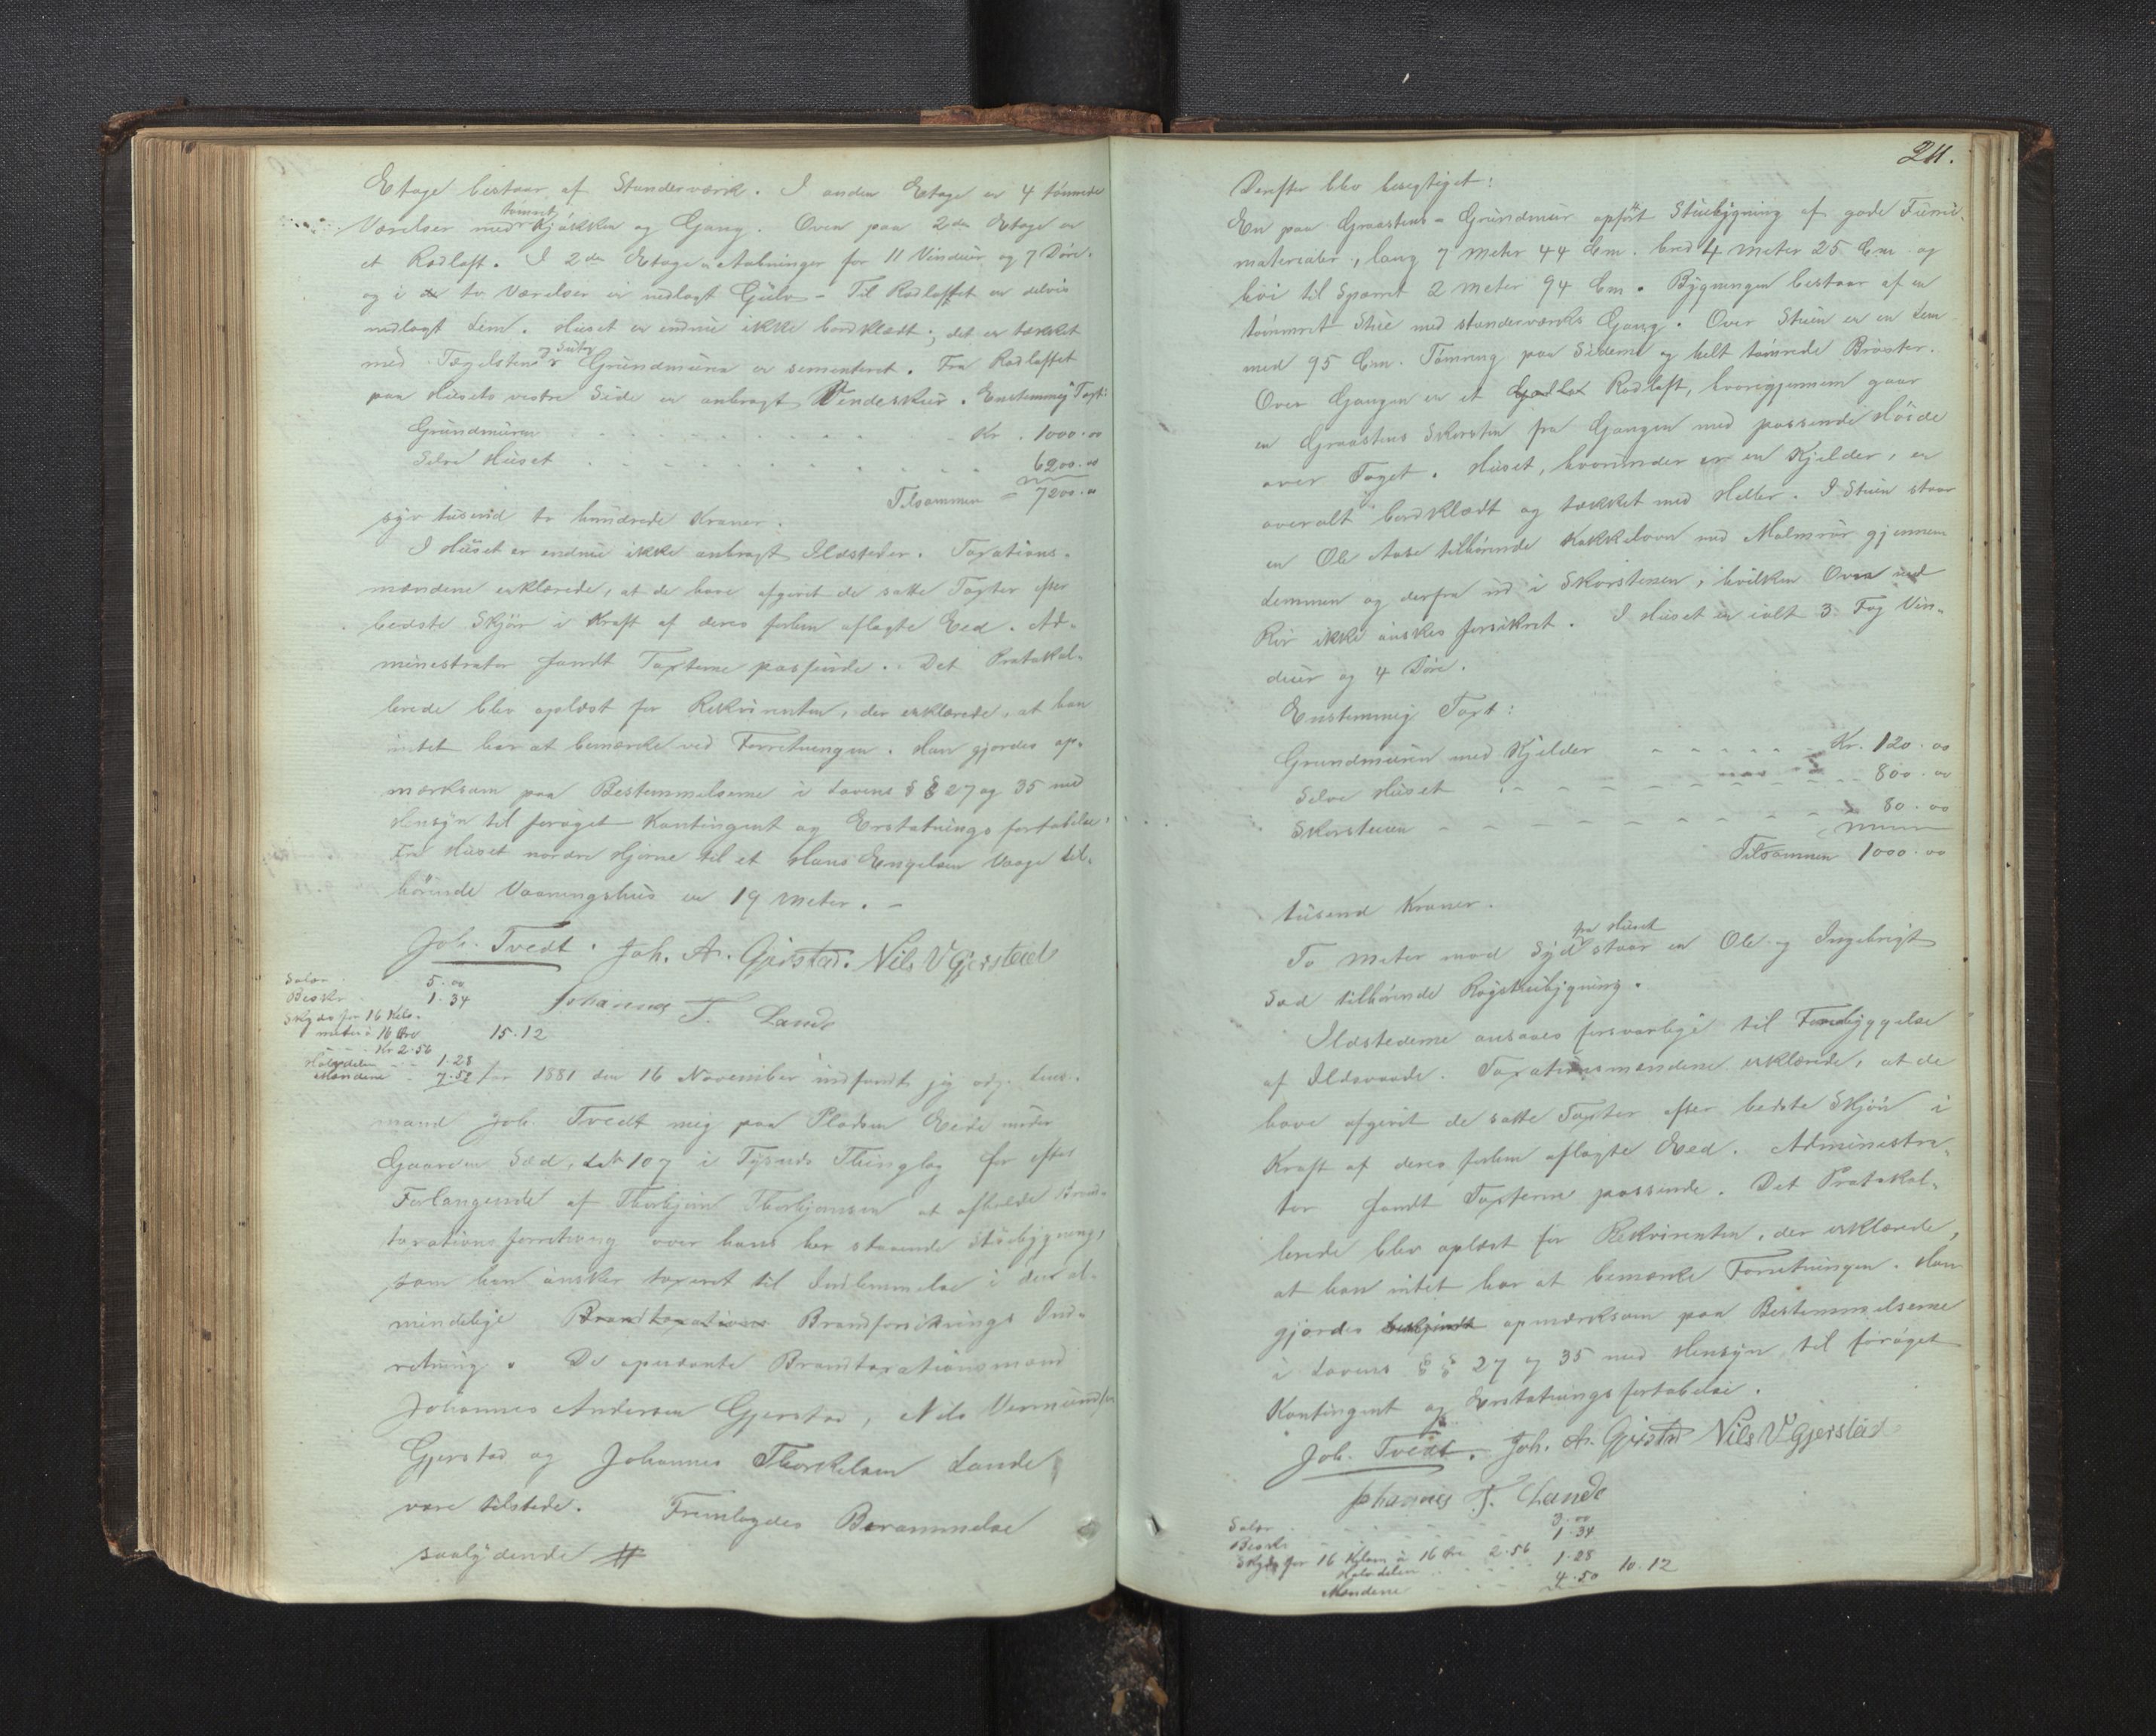 Etage bestaar af Standerværk. I anden Etage er 4 tömrede
Værelser med tömret Kjökken og Gang. Oven paa 2den Etage er
et Rodloft. I 2den Etage er Aabninger for 11 Vinduer og 7 Döre.
og i to Værelser er nedlagt Gulv - Til Rodloftet er delvis
nedlagt Lem. Huset er endnu ikke bordklædt; det er tækket
med Tægelsten og Grundmuren er sementeret. Fra Rodloftet
paa Husets vestre Side er anbragt Vindeskur. Enstemmig Taxt:
Grundmuren Kr. 1000.00
Selve Huset 6200.00
Tilsammen = 7200.00
syv tusend to hundrede Kroner.
I Huset er endnu ikke anbragt Ildsteder. Taxations-
mændene erklærede, at de have afgivet de satte Taxter efter
bedste Skjön i Kraft af deres forhen aflagte Eed. Ad-
ministrator fandt Taxterne passende. Det Protokol-
lerede blev oplæst for Rekvirenten, der erklærede, at han
intet har at bemærke ved Forretningen. Han gjordes op-
mærksom paa Bestemmelserne i Lovens § § 27 og 35 med
Hensyn til foröget Kontingent og Erstatnings fortabelse.
Fra Huset nordre Hjørne til et Hans Engelsen Vaage til-
hörende Vaaningshus er 19 Meter. -
Joh. Tvedt. Joh. A. Gjerstad. Nils V Gjerstad
Johannes T. Lande
Salær 5.00
Beskr. 1.34
Skyds for 16 Kilo-
meter a 16 Øre 15.12
Kr 2.56
Halvdelen 1.28
Mændene 7.50
Aar 1881 den 16 November indfandt jeg Lens-
mand Joh. Tvedt mig paa Pladsen Eide under
Gaarden Sæd, L№ 107 i Tysnes Thinglag for efter
Forlangende af Thorbjørn Thorbjørnsen at afholde Brand-
taxationsforretning over hans her staaende Stuebygning,
som han önsker taxeret til Indlemmelse i den al-
mindelige Brandtaxations Brandforsikrings Ind-
retning. De opnævnte Brandtaxationsmænd
Johannes Andersen Gjerstad, Nils Vermundsen
Gjerstad og Johannes Thorkelsen Lande
vare tilstede. Fremlagdes Berammelse
saalydende #
211.
Derefter blev besigtiget:
En paa Graastens-Grundmur opfört Stuebygning af gode Furu-
materialer, lang 7 Meter 44 Cm. bred 4 Meter 25 Cm og
höi til Sparret 2 Meter 94 Cm. Bygningen bestaar af en
tömmret Stue med standerværks Gang. Over Stuen er en Lem
med 95 Cm. Tömring paa Siderne og helt tömrede Bröster.
Over Gangen er et Rodloft, hvorigjennem gaar
en Graastens Skorsten fra Gangen med passende Höide
over Taget. Huset, hvorunder er en Kjelder, er
overalt bordklædt og tækket med Heller. I Stuen staar
en Ole Aase tilhörende Kakkelovn med Malmrör gjennem
Lemmen og derfra ind i Skorstenen, hvilken Ovn med
Rör ikke önskes forsikret. I Huset er ialt 3 Fag Vin-
duer og 4 Döre.
Enstemmig Taxt:
Grundmuren med Kjelder Kr. 120.00
Selve Huset 800.00
Skorstenen 80.00
Tilsammen 1000.00
tusend Kroner.
To Meter mod Syd fra Huset staar en Ole og Ingebrigt
Sæd tilhörende Rögstuebygning.
Ildstederne ansaaes forsvarlige til Forebyggelse
af Ildsvaade. Taxationsmændene erklærede, at de
have afgivet de satte Taxter efter bedste Skjön i
Kraft af deres forhen aflagte Eed. Administra-
tor fandt Taxterne passende. Det Protokol-
lerede blev oplæst for Rekvirenten, der erklærede,
at han intet har at bemærke Forretningen. Han
gjordes opmærksom paa Bestemmelserne
i Lovens § § 27 og 35 med Hensyn til foröget
Kontingent og Erstatnings fortabelse.
Joh. Tvedt. Joh. A. Gjerstad Nils V. Gjerstad
Johannes T. Lande
Salær 3.00
Beskr. 1.34
Skyds for 16 Kilom à 16 Øre 2.56
Halvdelen 1.28 10.12
Mændene 4.50